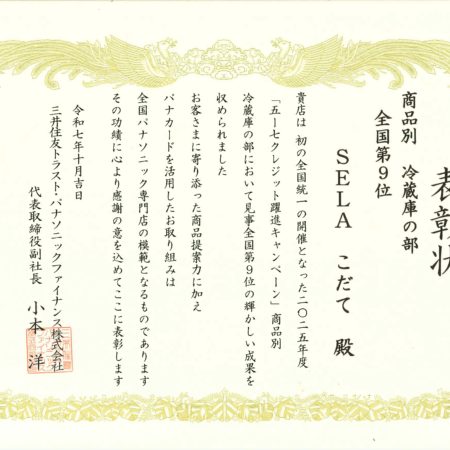 表彰状
商品別 冷蔵庫の部
全国第9位
SELA こだて 殿
貴店は 初の全国統一の開催となった二〇二五年度
「五ー七クレジット躍進キャンペーン」商品別
冷蔵庫の部において見事全国第9位の輝かしい成果を
収められました
お客さまに寄り添った商品提案力に加え
パナカードを活用したお取り組みは
全国パナソニック専門店の模範となるものであります
その功績に心より感謝の意を込めてここに表彰します
令和七年十月吉日
三井住友トラスト・パナソニックファイナンス株式会社
代表取締役副社長 小本 洋